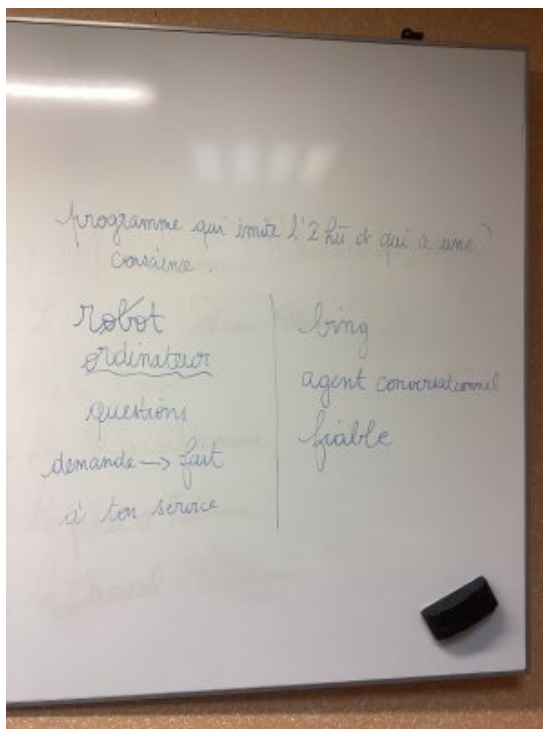 programme qui imite l'2 hū et qui a une
conscience.
robot
ordinateur
questions
demande → fait
à ton service
bing
agent conversationnel
fiable